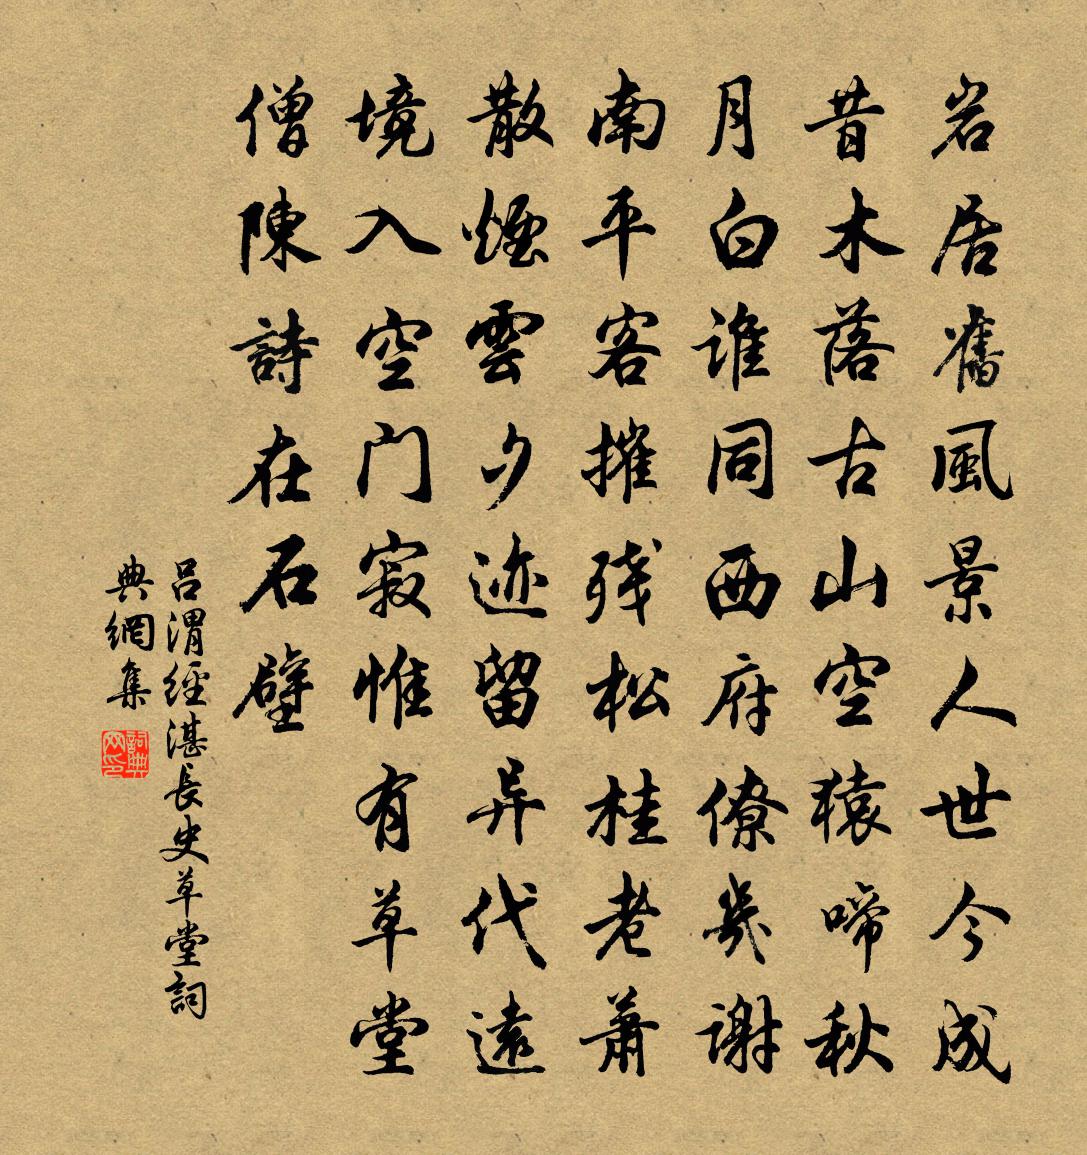 岩居舊風景人世今成
昔木落古山空猿啼秋
月白誰同西府僚幾謝
南平客摧殘松桂老蕭
散煙雲夕迹留异代遠
境入空门寂惟有草堂
僧陳詩在石壁
吕渭經湛長史草堂詞
典網集
詞典网印